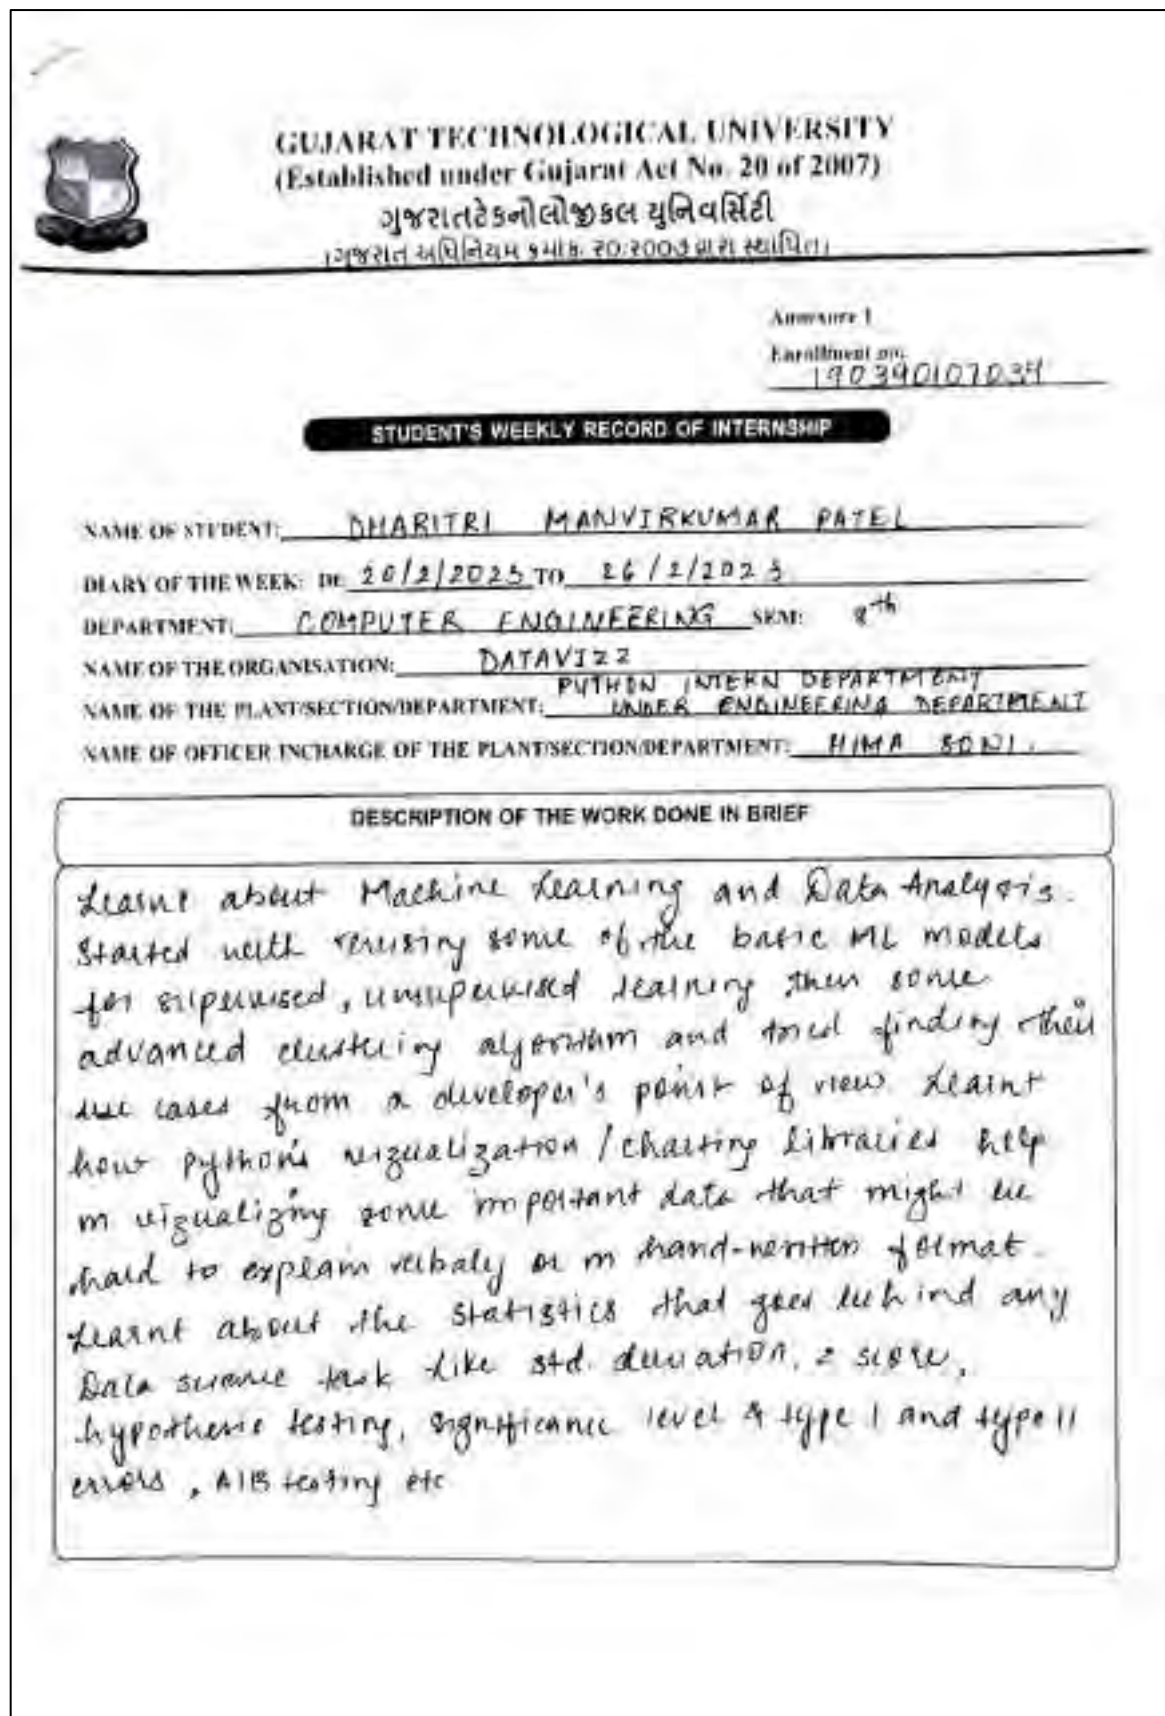 GUJARAT TECHNOLOGICAL UNIVERSITY
(Established under Gujarat Act No. 20 of 2007)
ગુજરાતટેકનોલોજીકલ યુનિવર્સિટી
(ગુજરાત અધિનિયમ ક્રમાંક: ૨૦/૨૦૦૭ દ્વારા સ્થાપિત)
Annexure 1
Enrollment no.
190390107034
STUDENT'S WEEKLY RECORD OF INTERNSHIP
NAME OF STUDENT: DHARITRI MANVIRKUMAR PATEL
DIARY OF THE WEEK: DT. 20/2/2023 TO 26/2/2023
DEPARTMENT: COMPUTER ENGINEERING SEM: 8th
NAME OF THE ORGANISATION: DATAVIZZ
PYTHON INTERN DEPARTMENT
NAME OF THE PLANT/SECTION/DEPARTMENT: UNDER ENGINEERING DEPARTMENT
NAME OF OFFICER INCHARGE OF THE PLANT/SECTION/DEPARTMENT: HIMA SONI.
DESCRIPTION OF THE WORK DONE IN BRIEF
Learnt about Machine Learning and Data Analysis.
Started with revising some of the basic ML models
for supervised, unsupervised learning then some
advanced clustering algorithm and tried finding their
use cases from a developer's point of view. Learnt
how python's vizualization / charting libraries help
in vizualizing some important data that might be
hard to explain verbaly or in hand-written format.
Learnt about the statistics that goes behind any
Data science task like std. deviation, z score,
hypothesis testing, significance level & type I and type II
errors, A/B testing etc